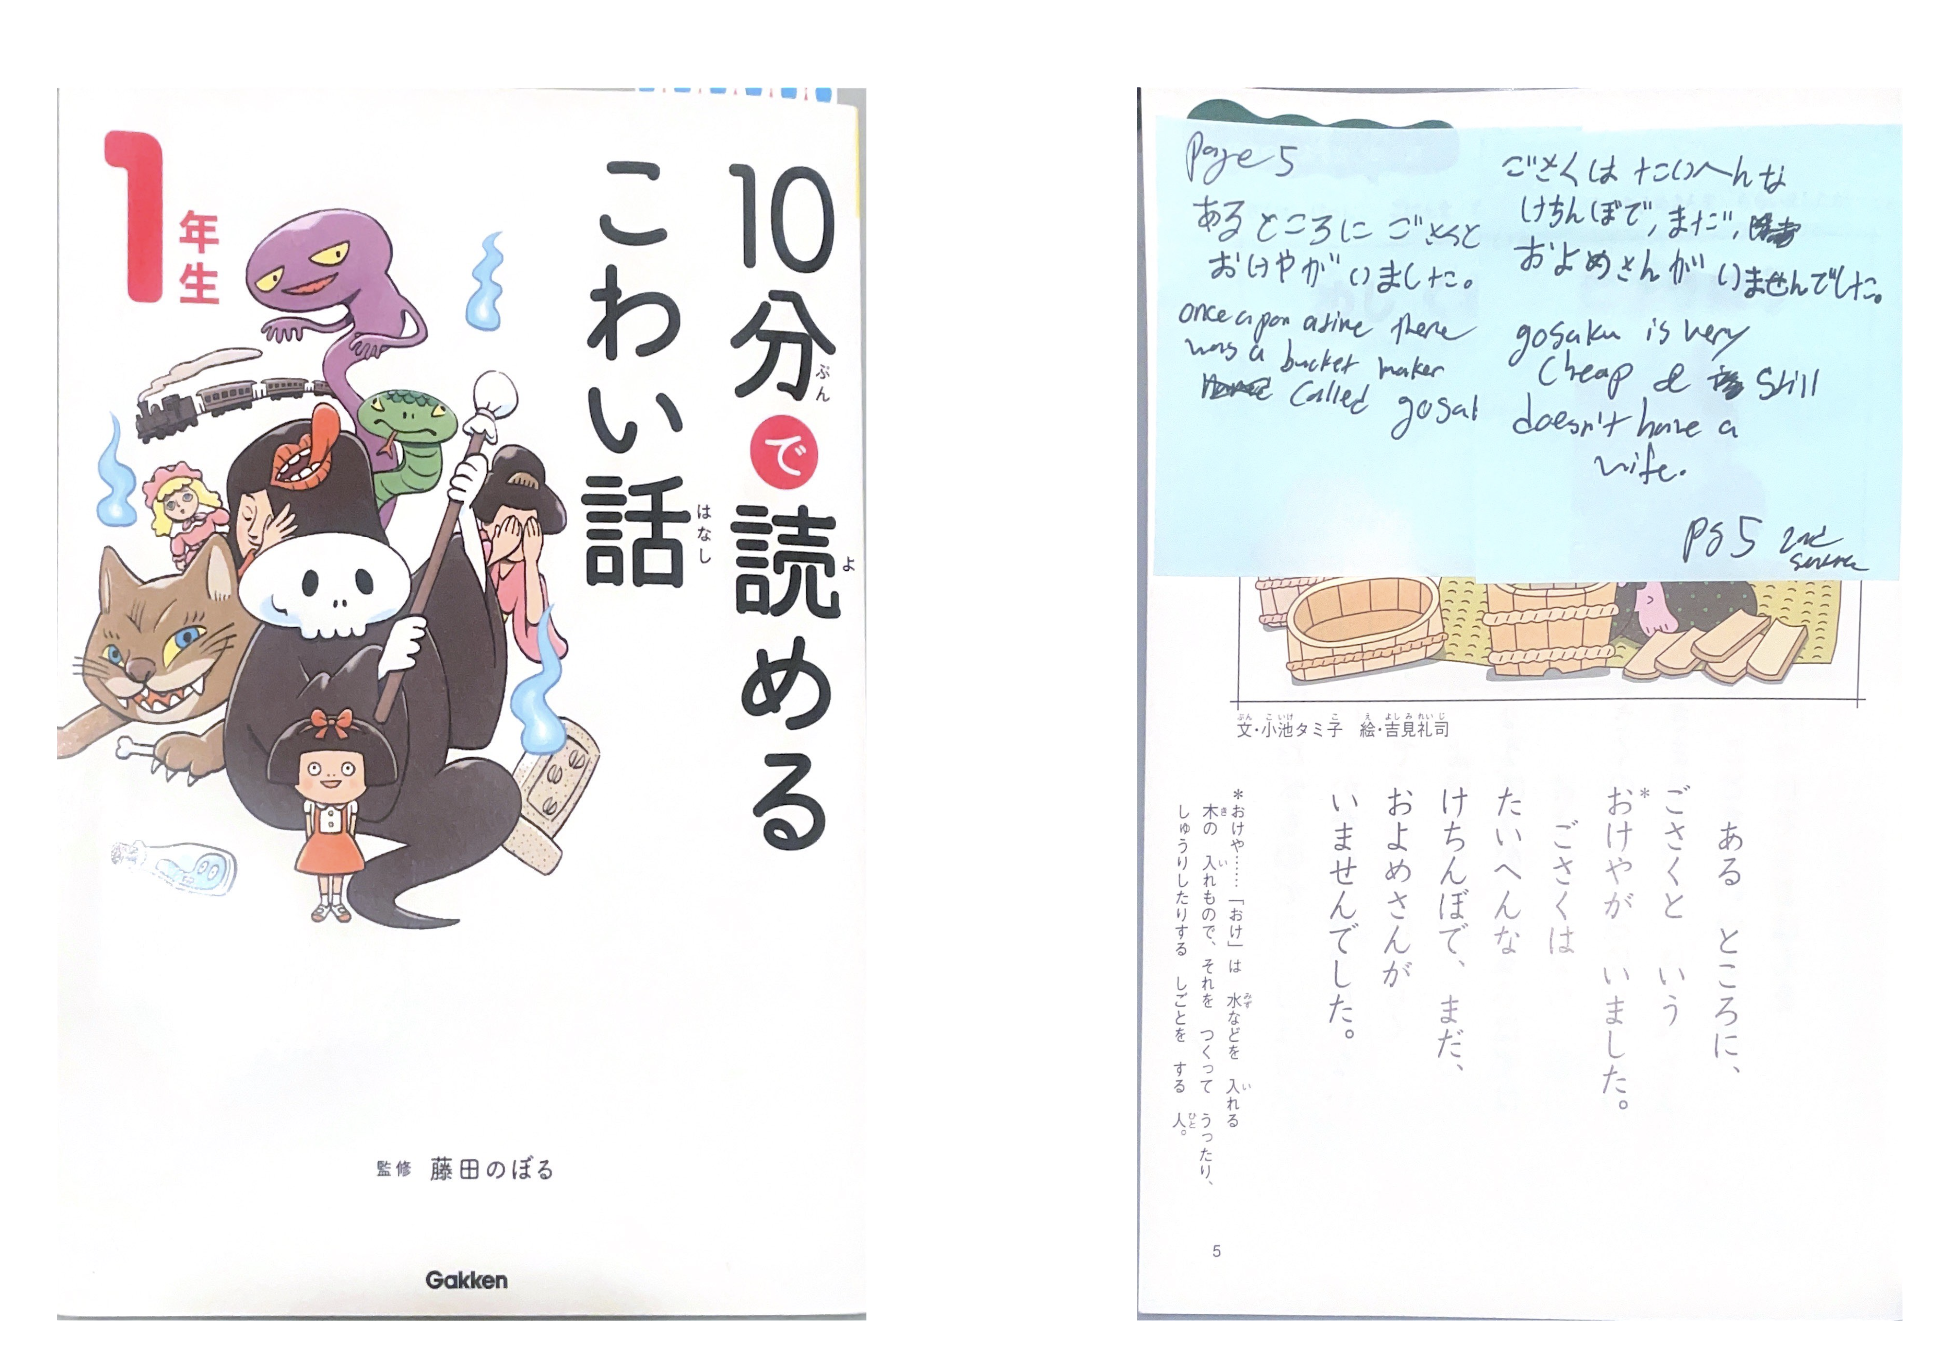 1年生
10分で読める
ぶん
よ
こわい話
はなし
監修 藤田のぼる
Gakken
Page 5
あるところに ごさくと
おけやが いました。
once apon a time there
was a bucket maker
called gosak
ごさくは たいへんな
けちんぼで、まだ、
およめさんが いませんでした。
gosaku is very
cheap & still
doesn't have a
wife.
pg 5 2nd
文・小池タミ子 絵・吉見礼司
ぶん こいけ こ え よしみれいじ
ある ところに、
ごさくと いう
*おけやが いました。
ごさくは
たいへんな
けちんぼで、まだ、
およめさんが
いませんでした。
*おけや……「おけ」は 水などを 入れる
みず い
木の 入れもので、それを つくって うったり、
き い
しゅうりしたりする しごとを する 人。
ひと
5